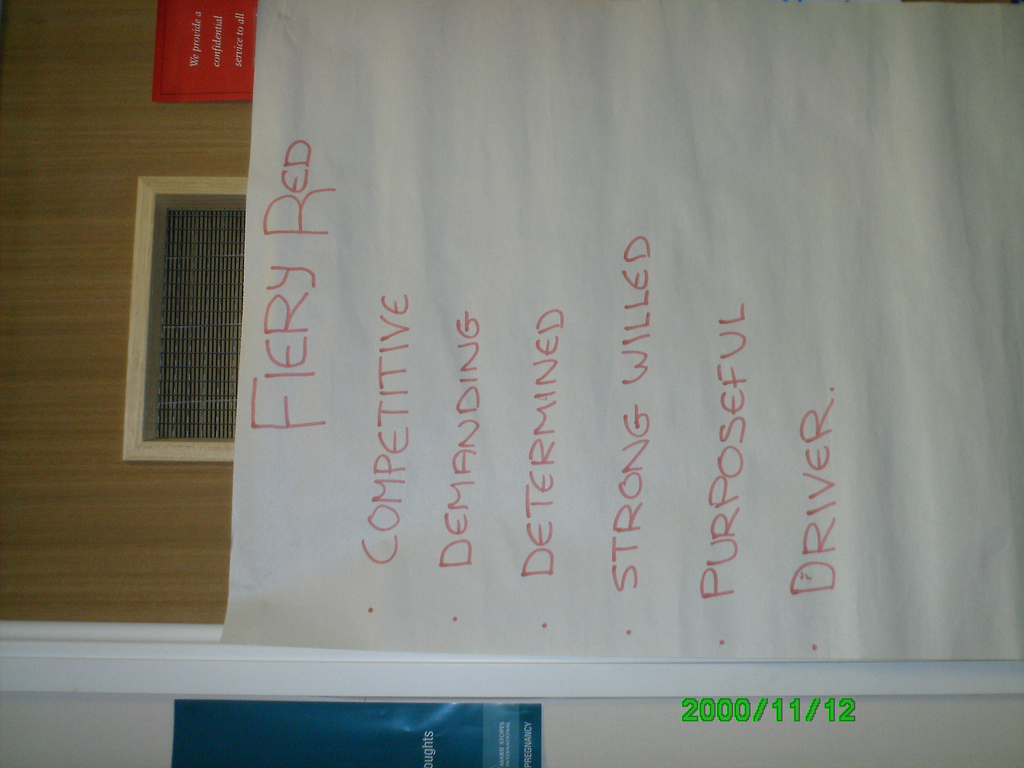 We provide a
confidential
service to all
FIERY RED
• COMPETITIVE
• DEMANDING
• DETERMINED
• STRONG WILLED
• PURPOSEFUL
• DRIVER.
oughts
MARIE STOPES
INTERNATIONAL
PREGNANCY
2000/11/12